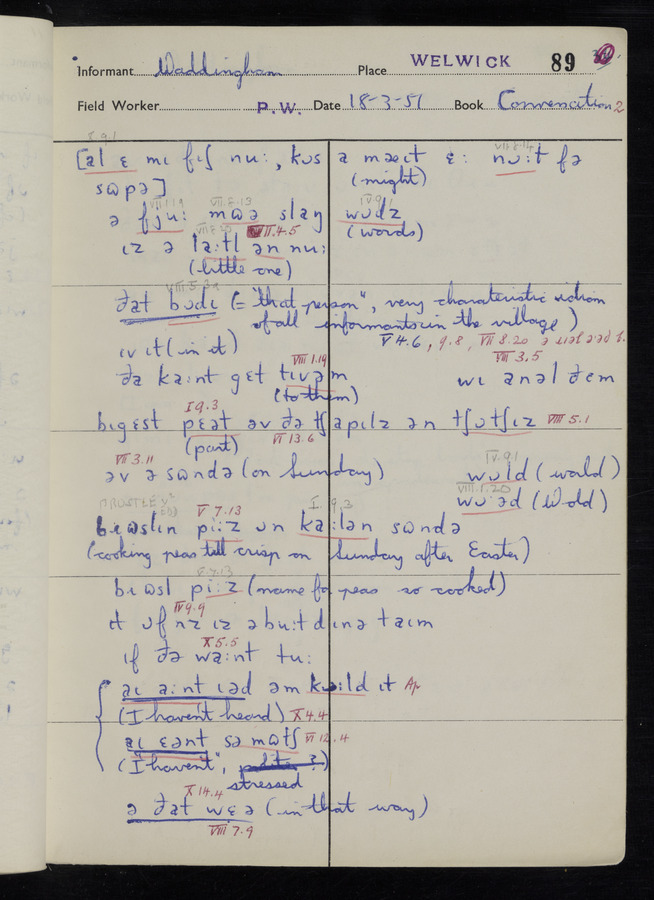 Informant Waddingham Place WELWICK 89
Field Worker P.W. Date 18-3-51 Book Conversation 2
8.9.1
[al ɛ mɪ fɪʃ nuː, kʊs ə mæɪt ɛː nʊːt fə
sʊpə] (might)
VII.1.19 VII.8.13 IV.9.1
ə fjuː mʊə slaŋ wʊdz
VII.4.5
ɪz ə laːtl ən nuː (words)
(little one)
VIII.5.3a
ðat bʊdɪ (= "that person", very characteristic idiom
of all informants in the village)
ɪv ɪt (in it) V 4.6, 9.8, VII 8.20
VIII 1.19 VIII 3.5
ðə kaːnt gɛt tɪvəm wɪ anəl ðɛm
(to them)
I 9.3
bɪgɛst pɛət əv ðə tʃapɪlz ən tʃʊtʃɪz VIII 5.1
(part) VI 13.6
VII 3.11 IV.9.1
əv ə sʊndə (on Sunday) wʊld (world)
VIII.1.20
wʊəd (World)
V 7.13 I.9.3
brʊslɪn piːz ʊn kaːlən sʊndə
(cooking peas till crisp on Sunday after Easter)
V.7.13
brʊsl piːz (name for peas so cooked)
IV 9.9
ɪt ʊfnz ɪz əbuːt dɪnə taɪm
X 5.5
ɪf ðə waːnt tuː
aɪ aːnt ɪəd əm kaːld ɪt Ap
(I haven't heard) X 4.4
aɪ ɛənt sə mʊtʃ VI 12.4
("I haven't",
stressed
X 14.4
ə ðat wɛə (in that way)
VIII 7.9